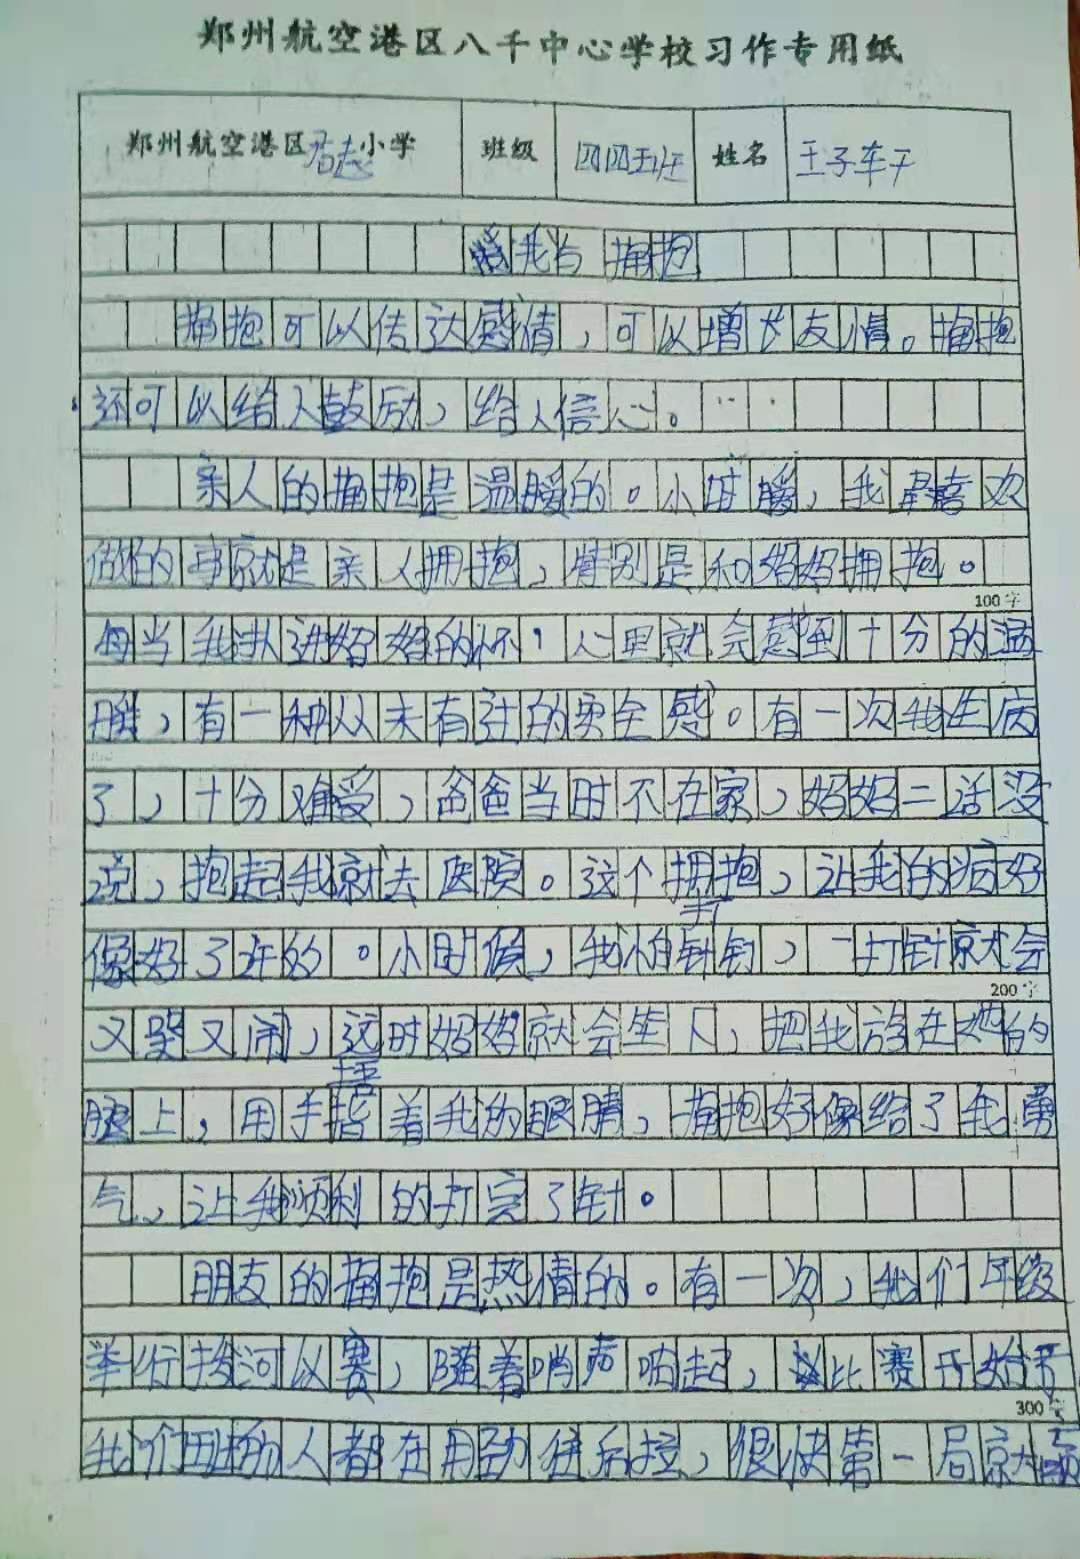 郑州航空港区八千中心学校习作专用纸
郑州航空港区 小学 班级 四四五班 姓名 王子
我与拥抱
拥抱可以传达感情，可以增长友情。拥抱
还可以给人鼓励，给人信心。
亲人的拥抱是温暖的。小时暖，我最喜欢
做的事就是亲人拥抱，特别是和妈妈拥抱。
100字
每当我扑进妈妈的怀，心里就会感到十分的温
暖，有一种从未有过的安全感。有一次我生病
了，十分难受，爸爸当时不在家，妈妈二话没
说，抱起我就去医院。这个拥抱，让我的病好
像好了许的。小时候，我怕打针，一打针就会
200字
又哭又闹，这时妈妈就会坐下，把我放在她的
腿上，用手捂着我的眼睛，拥抱好像给了我勇
气，让我顺利的打完了针。
朋友的拥抱是热情的。有一次，我们年级
举行拔河以赛，随着哨声响起，比赛开始了
300字
我们班的人都在用劲往后拉，很快第一局就